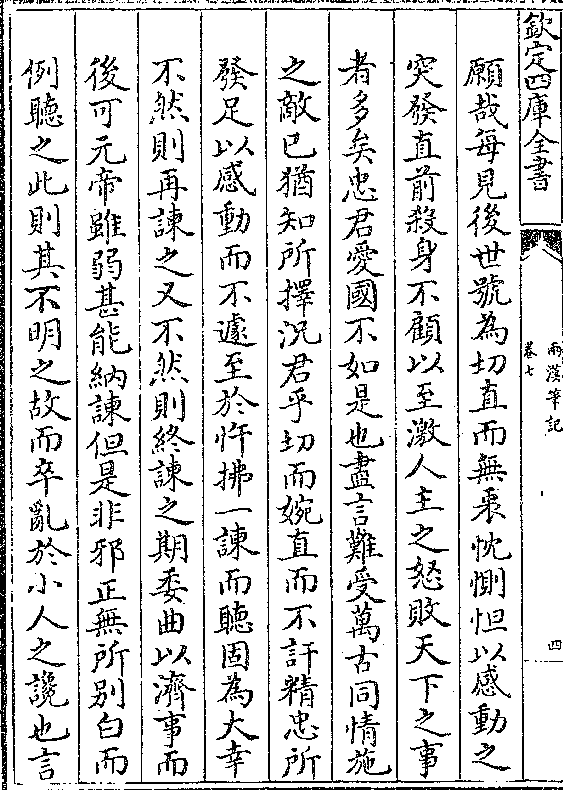 欽定四庫全書
兩漢筆記
卷七
四
願哉每見後世號為切直而無衷忱惻怛以感動之
突發直前殺身不顧以至激人主之怒敗天下之事
者多矣忠君愛國不如是也盡言難受萬古同情施
之敵已猶知所擇况君乎切而婉直而不訐精忠所
發足以感動而不遽至於忤拂一諫而聽固為大幸
不然則再諫之又不然則終諫之期委曲以濟事而
後可元帝雖弱甚能納諫但是非邪正無所别白而
例聽之此則其不明之故而卒亂於小人之讒也言